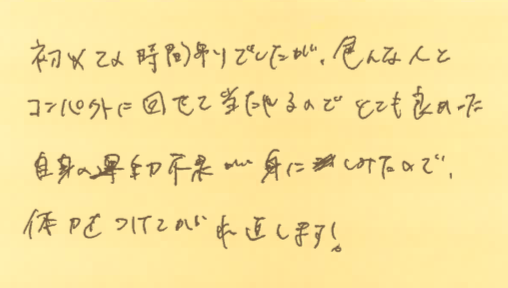 初めての時間割りでしたが、色んな人と
コンパクトに回せて当たれるのでとても良かった
自身の運動不足が身にしみたので、
体力をつけて出直します!